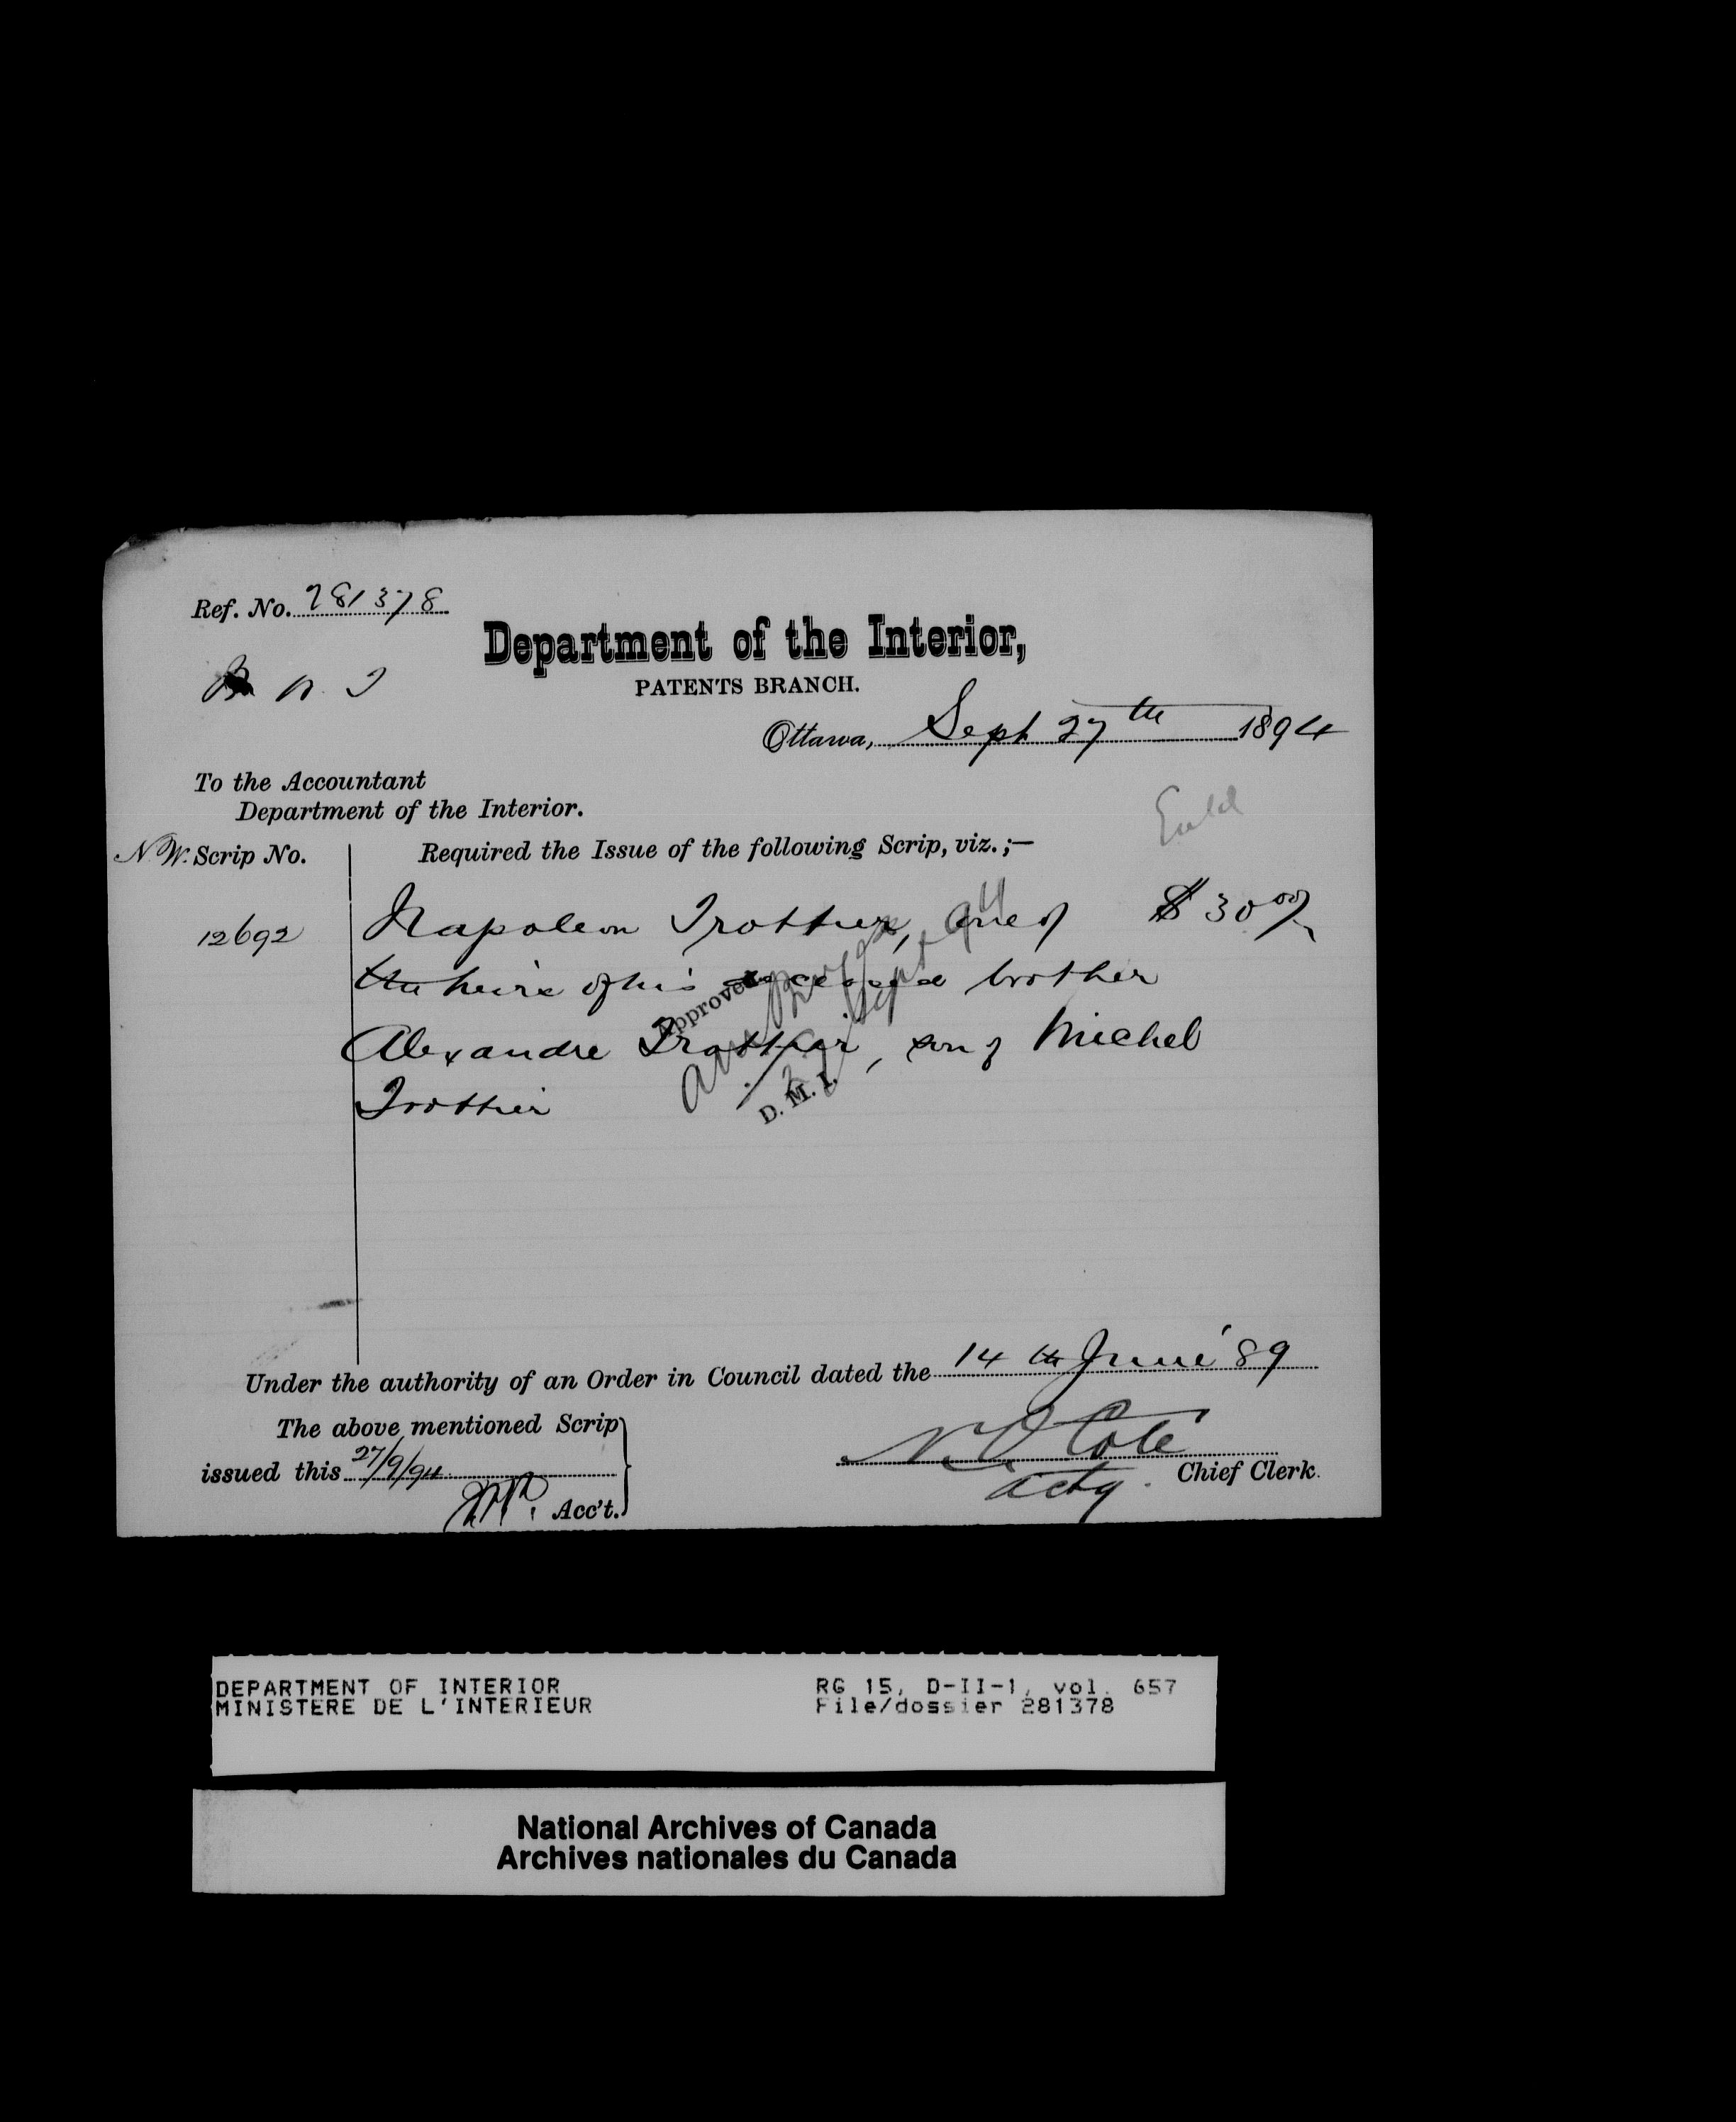 Ref. No. 281378
Department of the Interior,
PATENTS BRANCH.
Ottawa, Sept 27th 1894
To the Accountant
Department of the Interior.
N.W. Scrip No.
Required the Issue of the following Scrip, viz.;—
12692
Napoleon Trottier, one of $30 00/
the heirs of his deceased brother
Alexandre Trottier, son of Michel
Trottier
Approved
Sept 94
D. M. I.
Under the authority of an Order in Council dated the 14th June '89
The above mentioned Scrip
issued this 27/9/94
Acc't.
N.O. Coté
actg. Chief Clerk.
DEPARTMENT OF INTERIOR RG 15, D-II-1, vol. 657
MINISTERE DE L'INTERIEUR File/dossier 281378
National Archives of Canada
Archives nationales du Canada